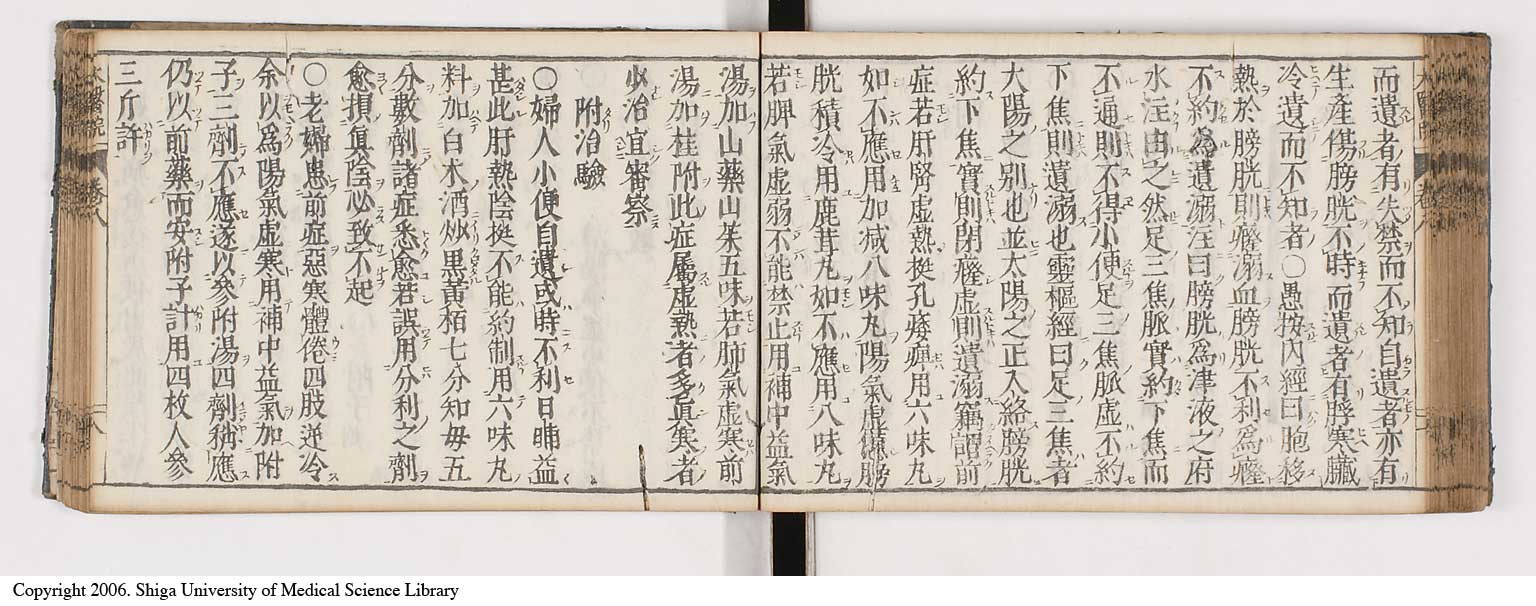 而遺者有失禁而不知自遺者亦有
生產傷膀胱不時而遺者有脬寒臟
冷遺而不知者〇愚按內經曰胞移
熱於膀胱則癃溺血膀胱不利爲癃
不約爲遺溺注曰膀胱爲津液之府
水注由之然足三焦脈實約下焦而
不通則不得小便足三焦脈虛不約
下焦則遺溺也靈樞經曰足三焦者
太陽之別也並太陽之正入絡膀胱
約下焦實則閉癃虛則遺溺竊謂前
症若肝腎虛熱挺孔痿痺用六味丸
如不應用加减八味丸陽氣虛憊膀
胱積冷用鹿茸丸如不應用八味丸
若脾氣虛弱不能禁止用補中益氣
湯加山藥山茱五味若肺氣虛寒前
湯加桂附此症屬虛熱者多眞寒者
少治宜審察
附治驗
〇婦人小便自遺或時不利日晡益
甚此肝熱陰挺不能約制用六味丸
料加白朮酒炒黑黃栢七分知毋五
分數劑諸症悉愈若誤用分利之劑
愈損眞陰必致不起
〇老婦患前症惡寒體倦四肢逆冷
余以爲陽氣虛寒用補中益氣加附
子三劑不應遂以參附湯四劑稍應
仍以前藥而安附子計用四枚人參
三斤許
Copyright 2006. Shiga University of Medical Science Library